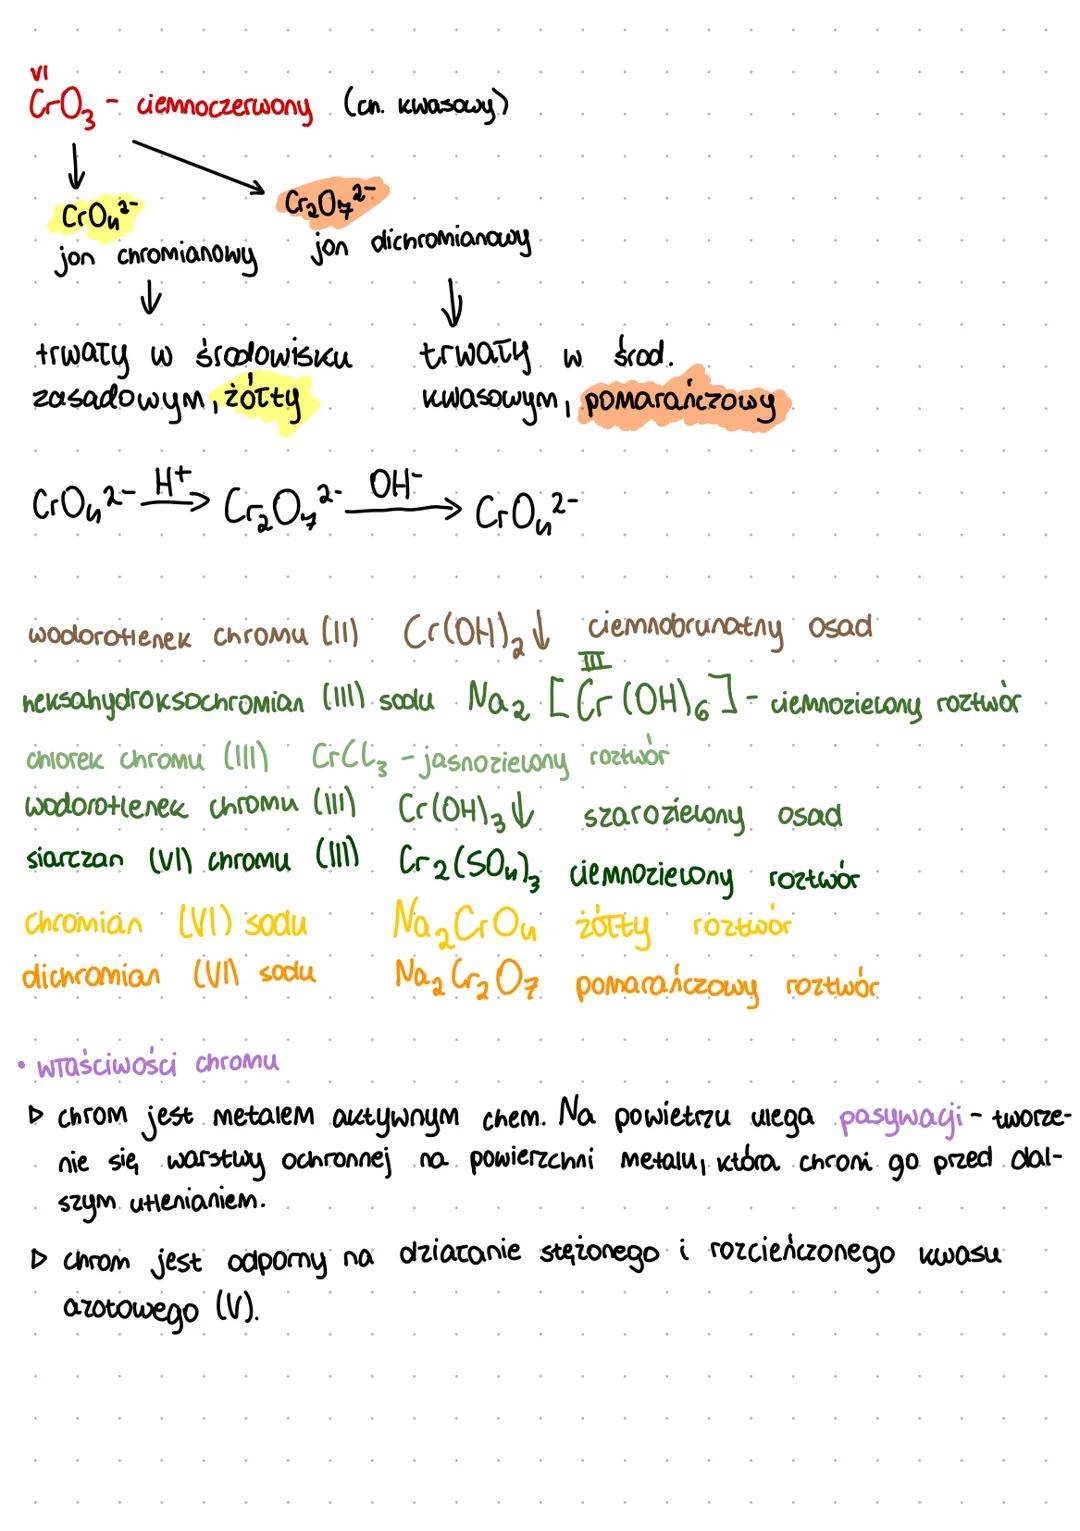 VI
CrO₃ - ciemnoczerwony (ch. kwasowy)
CrO₄²⁻ Cr₂O₇²⁻
jon chromianowy jon dichromianowy
trwały w środowisku trwały w środ.
zasadowym, żółty kwasowym, pomarańczowy
CrO₄²⁻ H⁺→ Cr₂O₇²⁻ OH⁻→ CrO₄²⁻
wodorotlenek chromu (II) Cr(OH)₂↓ ciemnobrunatny osad
III
heksahydroksochromian (III) sodu Na₂[Cr(OH)₆] - ciemnozielony roztwór
chlorek chromu (III) CrCl₃ - jasnozielony roztwór
wodorotlenek chromu (III) Cr(OH)₃↓ szarozielony osad
siarczan (VI) chromu (III) Cr₂(SO₄)₃ ciemnozielony roztwór
chromian (VI) sodu Na₂CrO₄ żółty roztwór
dichromian (VI) sodu Na₂Cr₂O₇ pomarańczowy roztwór
• właściwości chromu
▷ chrom jest metalem aktywnym chem. Na powietrzu ulega pasywacji - tworze-
nie się warstwy ochronnej na powierzchni metalu, która chroni go przed dal-
szym utlenianiem.
▷ chrom jest odporny na działanie stężonego i rozcieńczonego kwasu
azotowego (V).